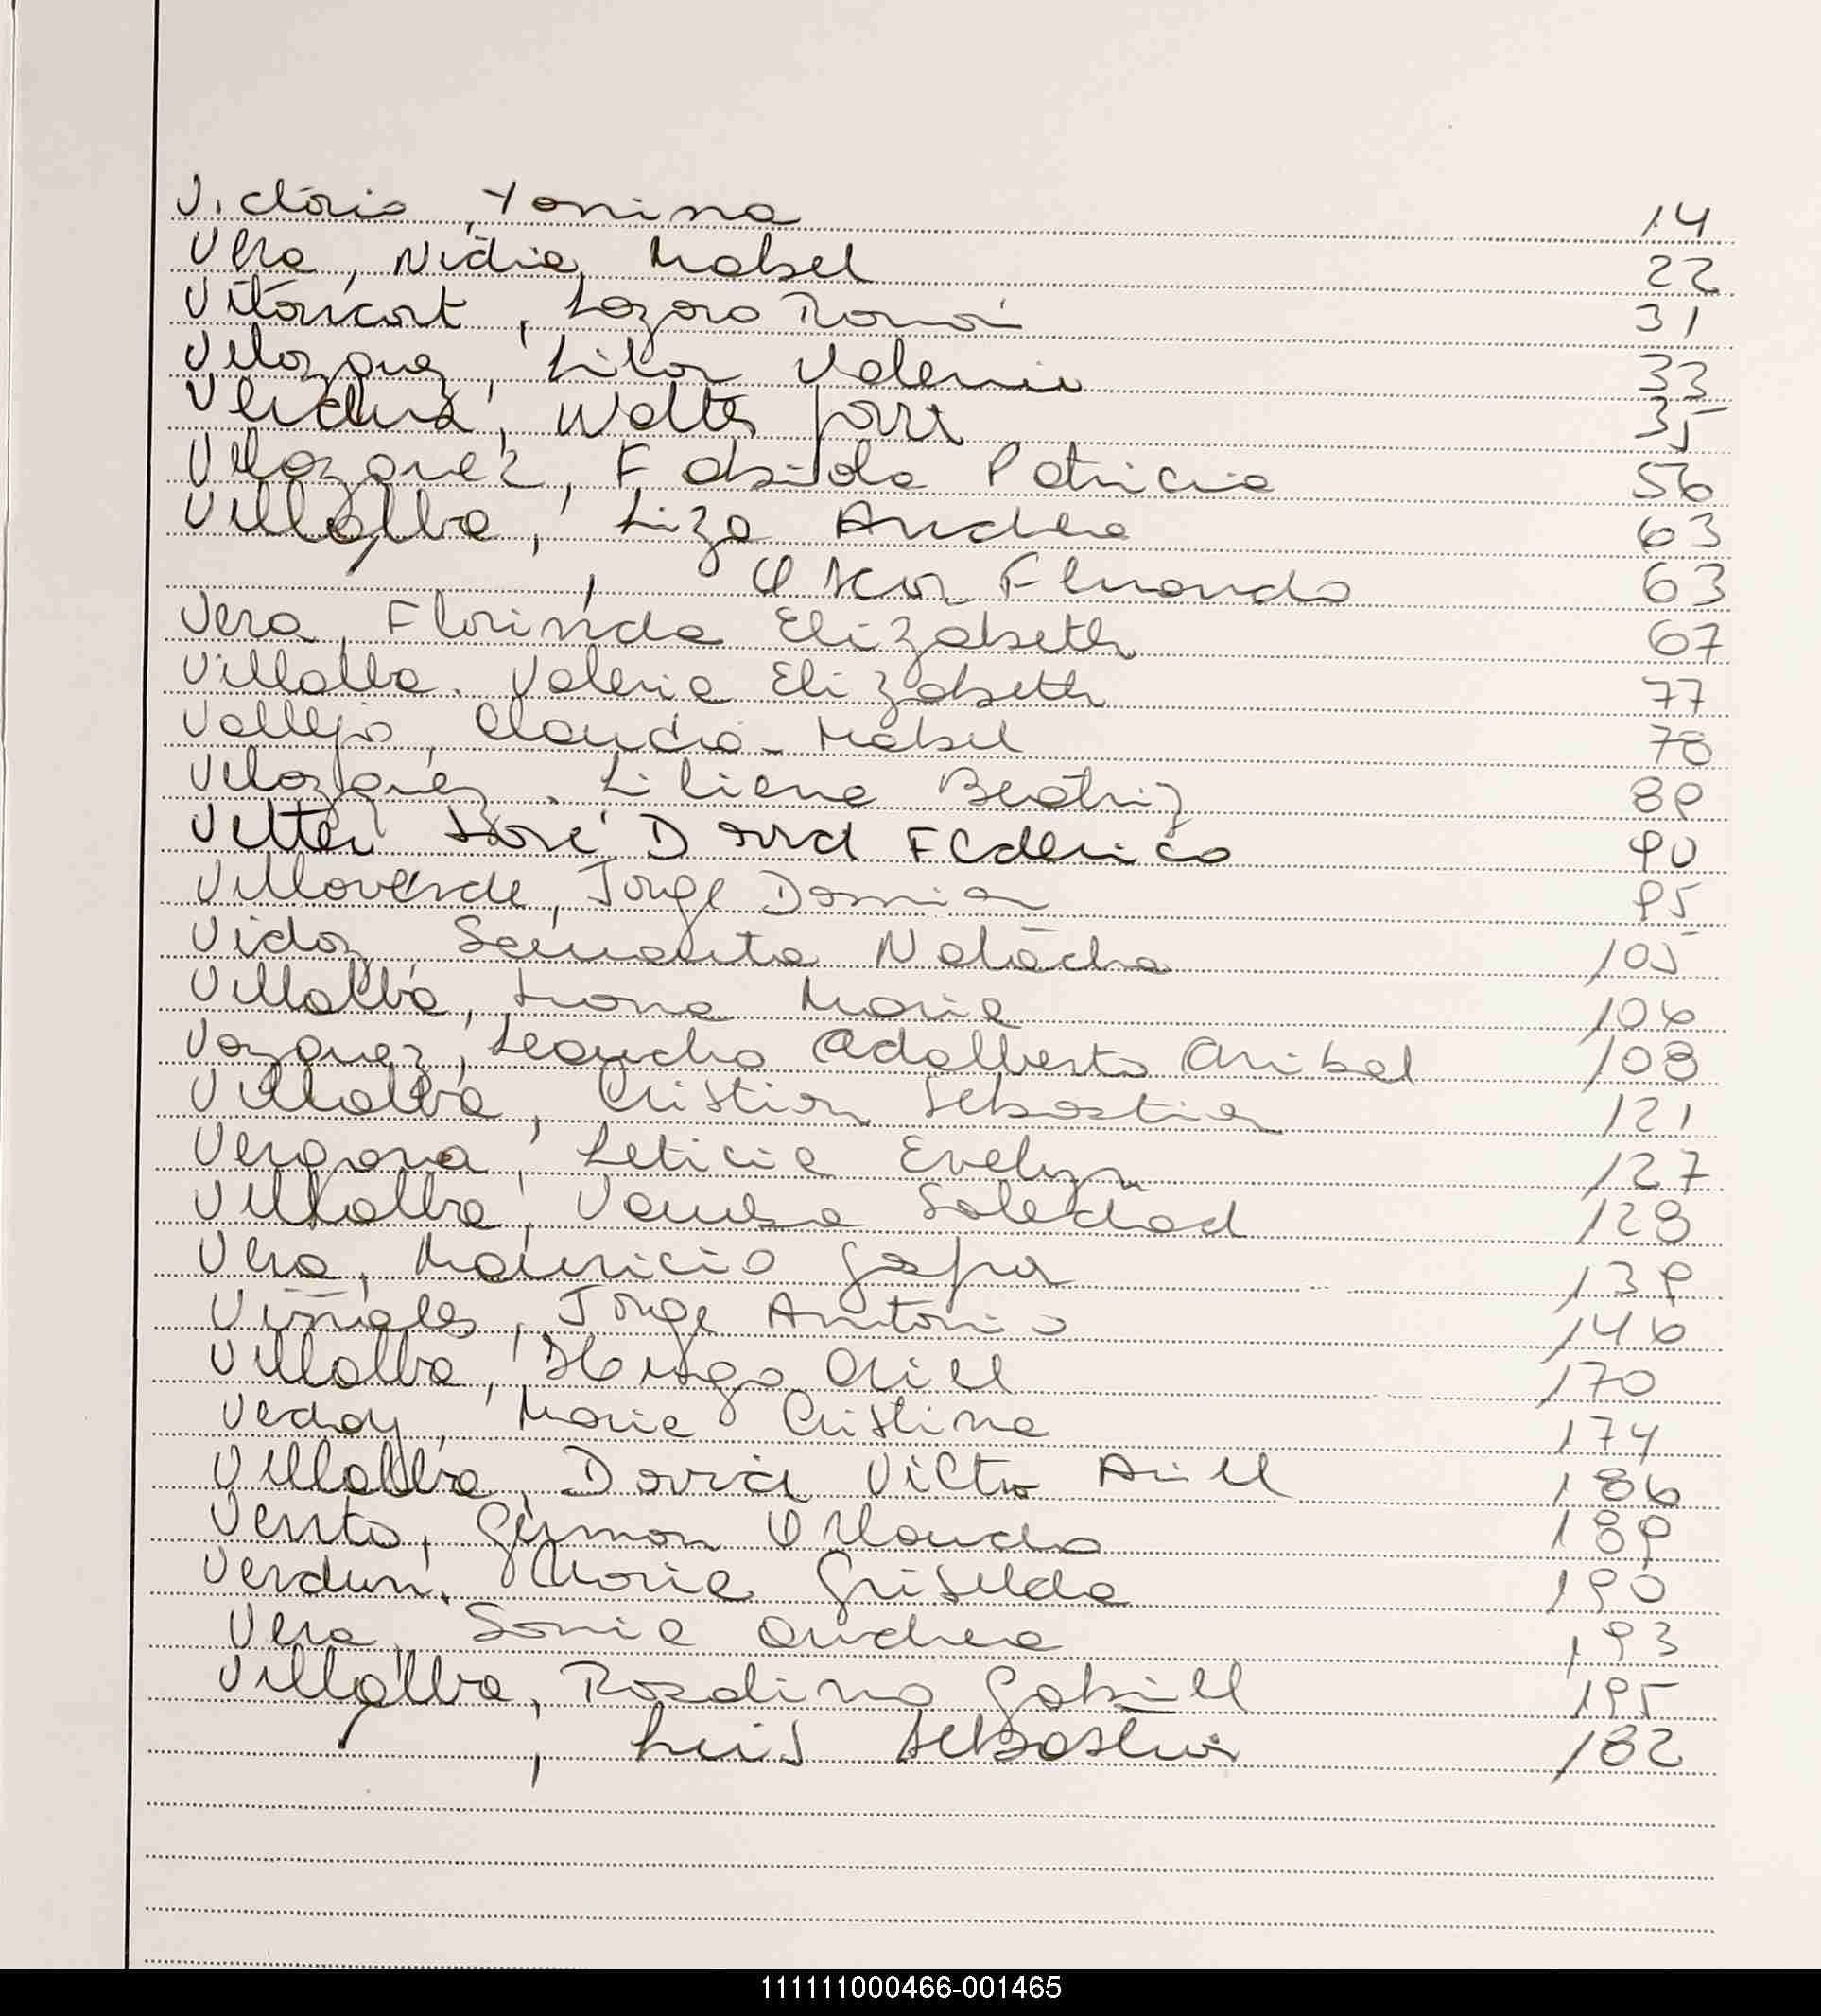 Victorio, Yanina 14
Vera, Nidia Mabel 22
Vitoricort, Lazaro Román 31
Velazquez, Lilor Valeria 33
Verdura, Walter 35
Velazquez, Fabiola Patricia 56
Villalba, Liza Andrea 63
, Oscar Fernando 63
Vera, Florinda Elizabeth 67
Villalba, Valeria Elizabeth 77
Vallejo, Claudia Mabel 78
Velazquez, Liliana Beatriz 89
Vetter José David Federico 90
Villaverde, Jorge Damian 95
Vidoz, Samanta Natacha 105
Villalba, Maria 106
Vazquez, Leandro Adalberto Anibal 108
Villalba, Cristian Sebastian 121
Vergara, Leticia Evelyn 127
Villalba, Vanesa Soledad 128
Vera, Mauricio Gaspar 139
Viñales, Jorge Antonio 146
Villalba, Hugo Ariel 170
Vedoy, Maria Cristina 174
Villalba, David Victor Ariel 186
Vento, German Orlando 189
Verdun, Maria Griselda 190
Vera, Sonia Andrea 193
Villalba, Rosalino Gabriel 195
, Luis Sebastian 182
111111000466-001465